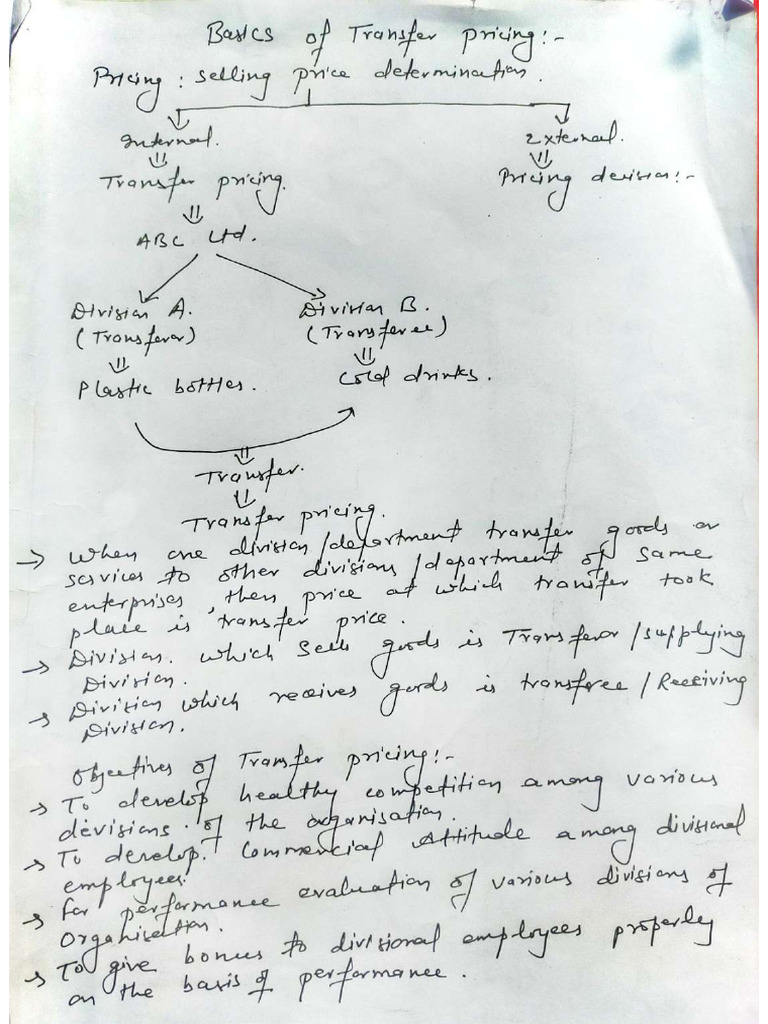 Basics of Transfer pricing:-
Pricing: selling price determination.
Internal. External.
Transfer pricing. Pricing decision:-
ABC Ltd.
Division A. Division B.
(Transferor) (Transferee)
Plastic bottles. Cold drinks.
Transfer.
Transfer pricing.
→ When one division/department transfer goods or
services to other divisions/department of same
enterprises, then price at which transfer took
place is transfer price.
→ Division. which sells goods is Transferor/supplying
Division.
→ Division which receives goods is transferee/Receiving
Division.
Objectives of Transfer pricing:-
→ To develop healthy competition among various
devisions of the organisation.
→ To develop. Commercial Attitude among divisional
employees.
→ For performance evaluation of various divisions of
Organisation.
→ To give bonus to divisional employees properly
on the basis of performance.